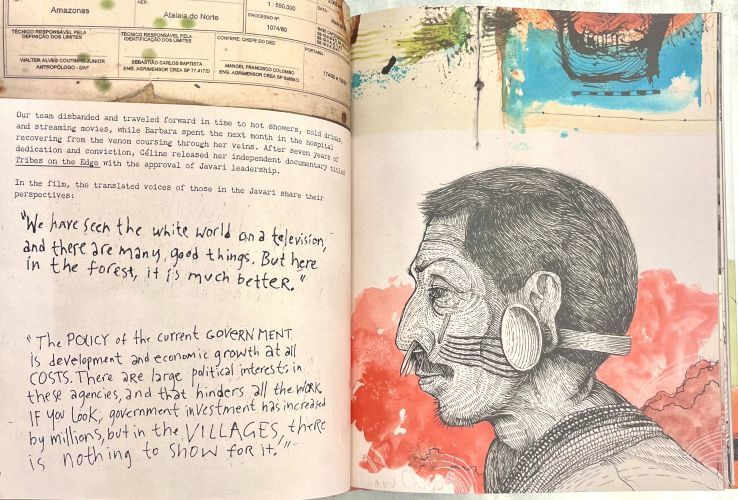 Amazonas
AER:
Atalaia do Norte
1 : 550.000
PROCESSO Nº
1074/80
TÉCNICO RESPONSÁVEL PELA
DEFINIÇÃO DOS LIMITES
TÉCNICO RESPONSÁVEL PELA
IDENTIFICAÇÃO DOS LIMITES
CONFERE: CHEFE DO DED
PORTARIA:
WALTER ALVES COUTINHO JUNIOR
ANTROPÓLOGO - DAF
SEBASTIÃO CARLOS BAPTISTA
ENG. AGRIMENSOR CREA SP 77.417/D
MANOEL FRANCISCO COLOMBO
ENG. AGRIMENSOR CREA SP
Our team disbanded and traveled forward in time to hot showers, cold drinks,
and streaming movies, while Barbara spent the next month in the hospital
recovering from the venom coursing through her veins. After seven years of
dedication and conviction, Céline released her independent documentary titled
Tribes on the Edge with the approval of Javari leadership.
In the film, the translated voices of those in the Javari share their
perspectives:
"We have seen the white world on a television,
and there are many, good things. But here
in the forest, it is much better."
"The POLICY of the current GOVERNMENT
is development and economic growth at all
COSTS. There are large political interests in
these agencies, and that hinders all the work
IF you look, government investment has increased
by millions, but in the VILLAGES, there
is nothing to SHOW for it."